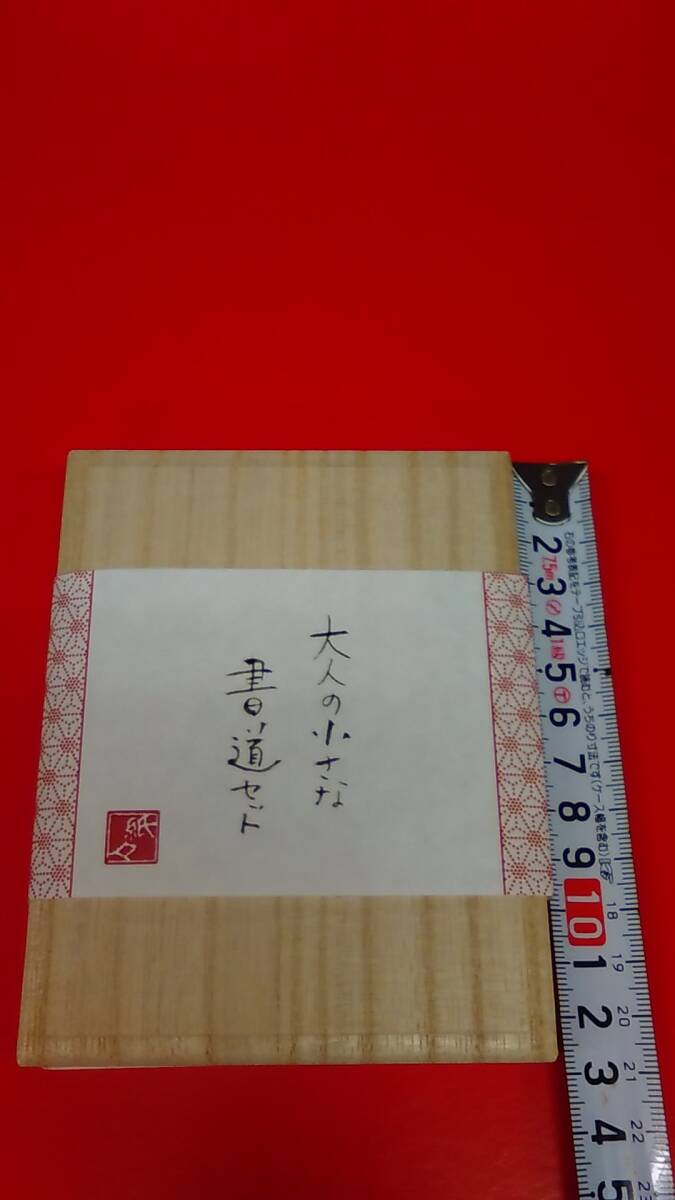 大人の小さな
書道セット
2
3
4
5
6
7
8
9
10
1
2
3
4
5
7.5m
18
19
20
21
22
23